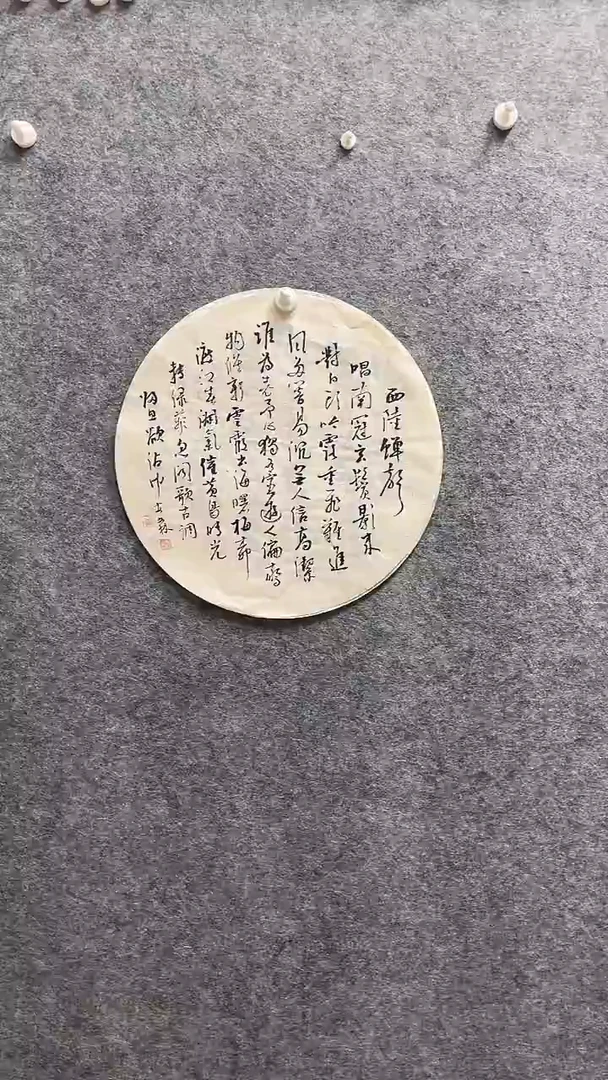 西陸蟬聲
唱南冠玄鬢影來
對白頭吟露重飛難進
風多響易沉無人信高潔
誰為表予心獨有宦遊人偏驚
物候新雲霞出海曙梅柳
渡江春淑氣催黃鳥晴光
轉綠蘋忽聞歌古調
歸思欲沾巾